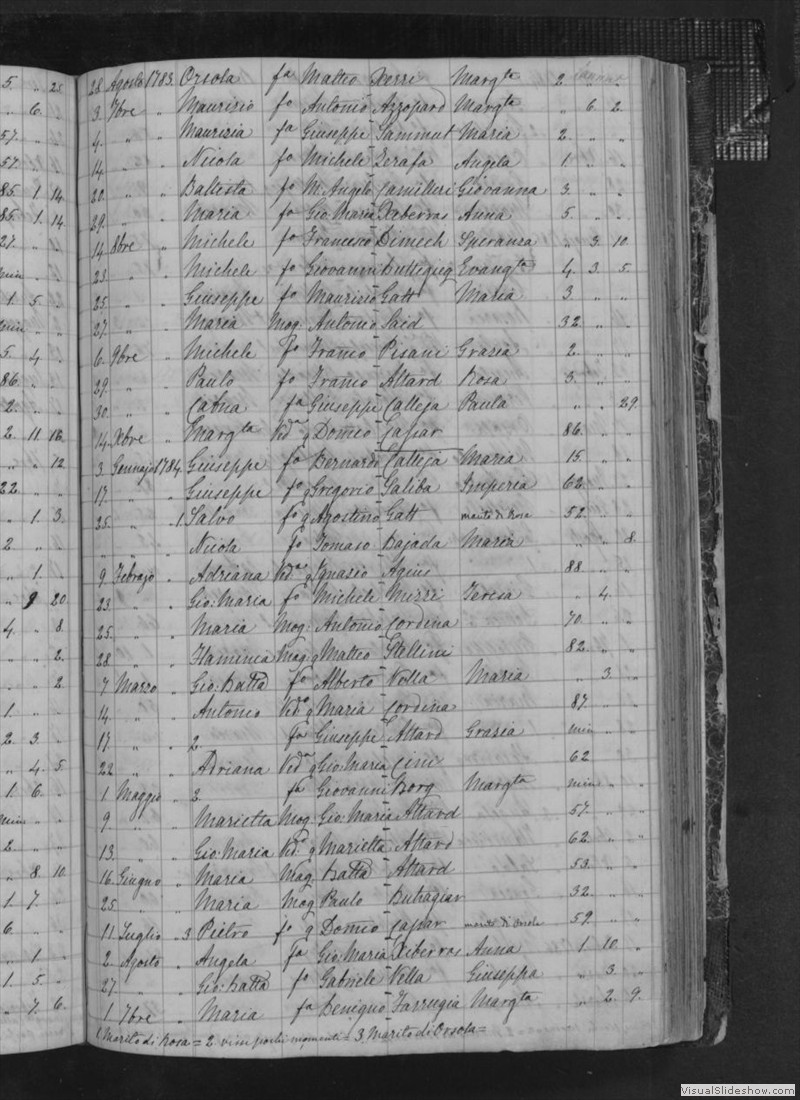 28 Agosto 1783 Orsola fa Matteo Xerri Margta 2 " "
3 7bre " Maurisio fo Antonio Azzopard Margta " 6 2
4 " " Maurisia fa Giuseppe Sammut Maria 2 " "
14 " " Nicola fo Michele Zerafa Angela 1 " "
20 " " Battista fo M. Angelo Camilleri Giovanna 3 " "
29 " " Maria fa Gio Maria Xiberras Anna 5 " "
14 8bre " Michele fo Francesco Dimech Speranza " 3 10
23 " " Michele fo Giovanni Buttegieg Evangta 4 3 5
25 " " Giuseppe fo Maurisio Gatt Maria 3 " "
27 " " Maria Mog. Antonio Said 32 " "
6 9bre " Michele fo Franco Pisani Grasia 2 " "
29 " " Paulo fo Franco Attard Rosa 3 " "
30 " " Catna fa Giuseppe Calleja Paula " " 29
14 Xbre " Margta Vda q Domco Casar 86 " "
3 Gennajo 1784 Giuseppe fo Bernardo Calleja Maria 15 " "
17 " " Giuseppe fo q Gregorio Galiba Imperia 62 " "
25 " 1 Salvo fo q Agostino Gatt marito di Rosa 52 " "
" " Nicola fo Tomaso Bajada Maria " " 8
9 Febrajo " Adriana Vda q Ignasio Agius 88 " "
23 " " Gio: Maria fo Michele Mizzi Teresa " 4 "
25 " " Maria Mog. Antonio Cordina 70 " "
28 " " Flaminia Mog q Matteo Stellini 82 " "
7 Marzo " Gio: Batta fo Alberto Vella Maria " 3 "
14 " " Antonio Vdo q Maria Cordina 87 " "
17 " " 2 fa Giuseppe Attard Grasia min " "
22 " " Adriana Vda q Gio: Maria Cini 62
1 Maggio " 2 fa Giovanni Borg Margta min " "
9 " " Marietta Mog. Gio: Maria Attard 57 " "
13 " " Gio: Maria Vdo q Marietta Attard 62 " "
16 Giugno " Maria Mog Batta Attard 53 " "
25 " " Maria Mog Paulo Buhagiar 32 " "
11 Luglio " 3 Pietro fo q Domco Casar marito di Orsola 59 " "
2 Agosto " Angela fa Gio: Maria Xiberras Anna 1 10 "
27 " " Gio: Batta fo Gabriele Vella Giuseppa " 3 "
1 7bre " Maria fa Benigno Farrugia Margta " 2 9
1 Marito di Rosa = 2 visse pochi momenti = 3 Marito di Orsola =
VisualSlideshow.com